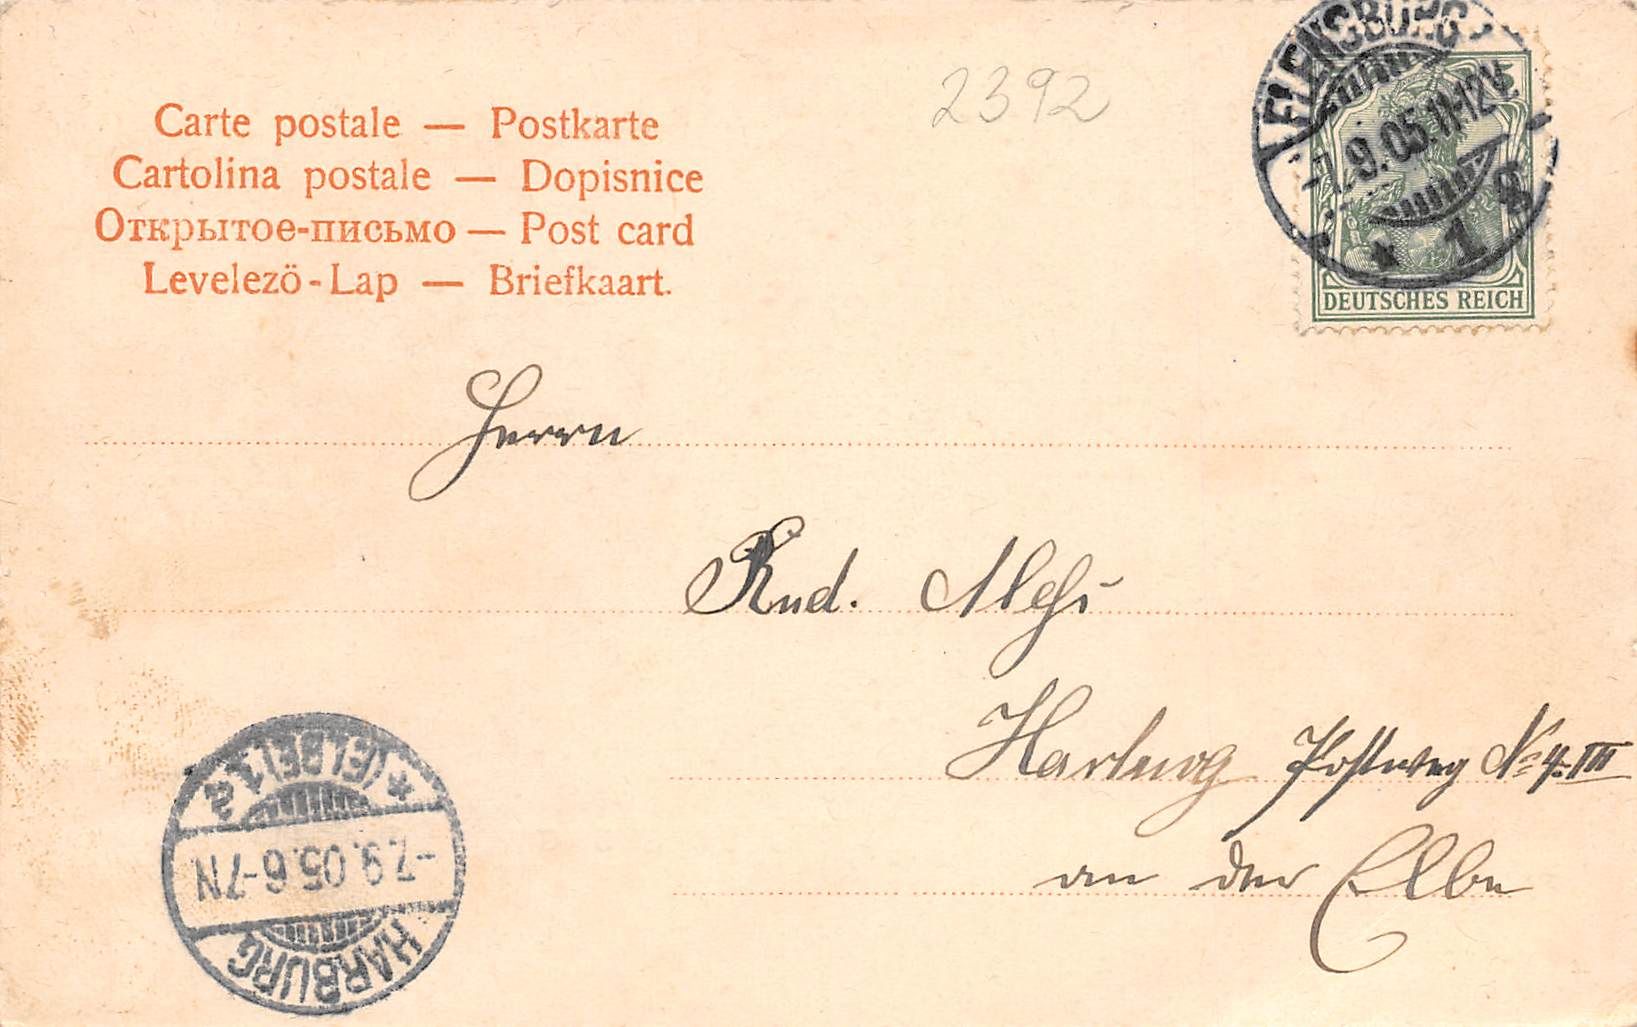 2392
Carte postale — Postkarte
Cartolina postale — Dopisnice
Открытое-письмо — Post card
Levelezö-Lap — Briefkaart.
FLENSBURG
-7.9.05.11-12V.
* 1
5
DEUTSCHES REICH
Herrn
Rud.
Postweg No 4. III
an der Elbe
HARBURG
-7.9.05.6-7N
* (ELBE) 1a